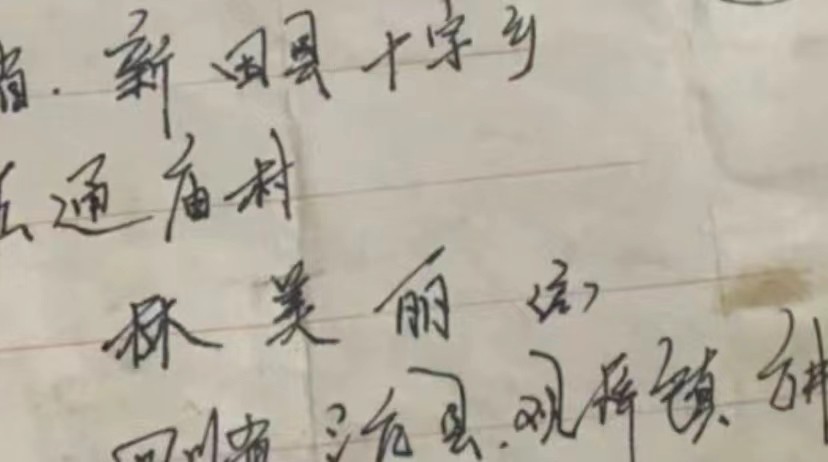 省.新田县十字乡
通庙村
林美丽(公)
四川省 治县.观 镇